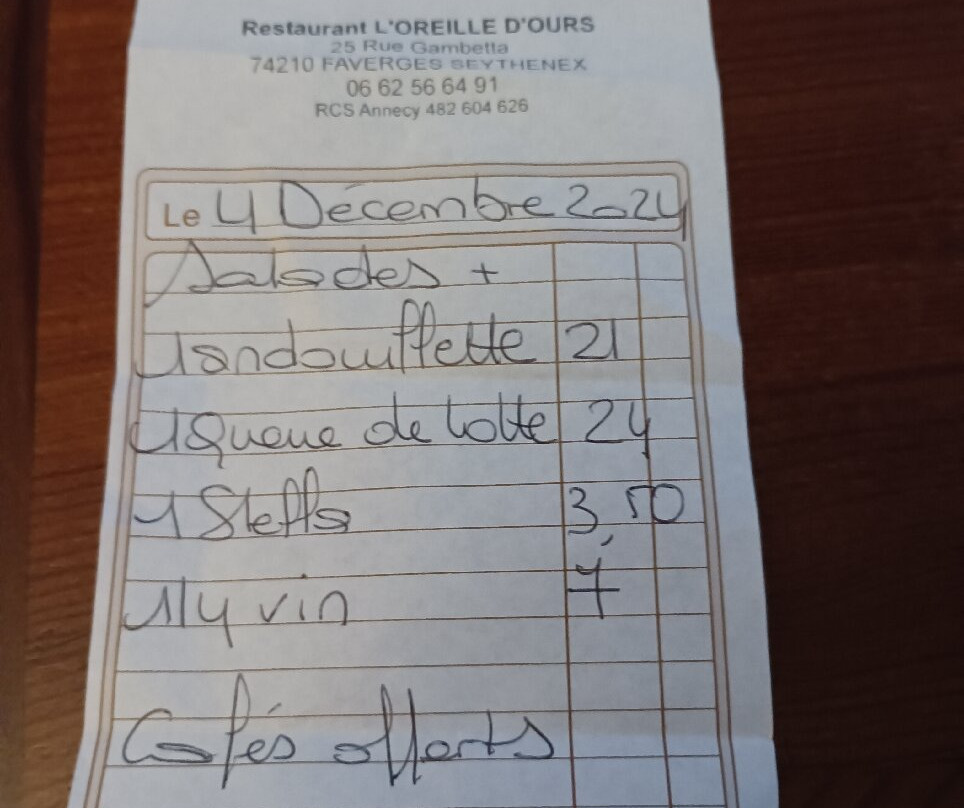 Restaurant L'OREILLE D'OURS
25 Rue Gambetta
74210 FAVERGES SEYTHENEX
06 62 56 64 91
RCS Annecy 482 604 626
Le 4 Décembre 2024
Salades +
1 andouffette 21
1 Queue de lotte 24
1 Steffs 3,50
1/4 vin 7
Cafés offerts